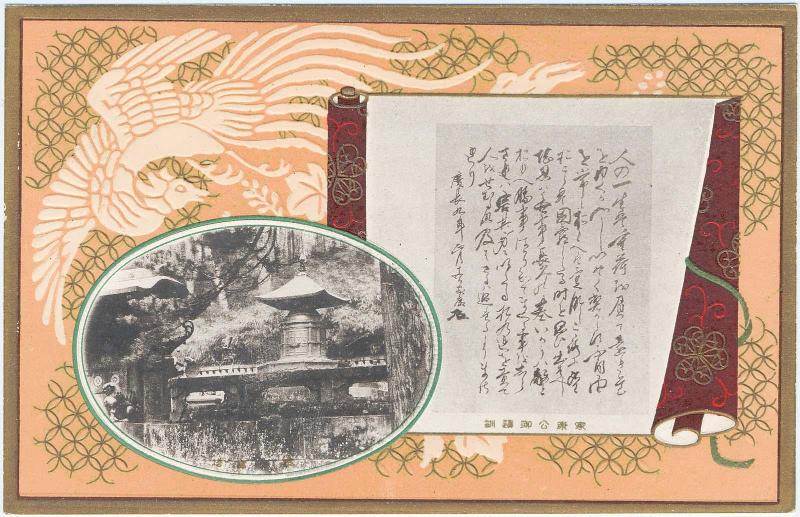 人の一生は重荷を負て遠き道
をゆくがごとしいそぐべからず不自由
を常とおもへば不足なし心に望
おこらば困窮したる時を思ひ出すべし
堪忍は無事長久の基いかりは敵
とおもへ勝事ばかり知てまくる事をしら
ざれば害其身にいたるおのれを責て
人をせむるな及ばざるは過たるよりまされ
り
慶長九年
家康公御遺訓